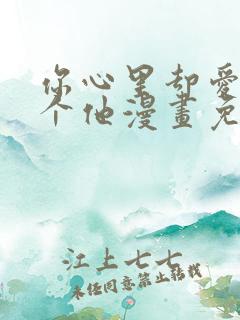 你心里却爱
个他漫畫免
江上七七
未经同意禁止转载